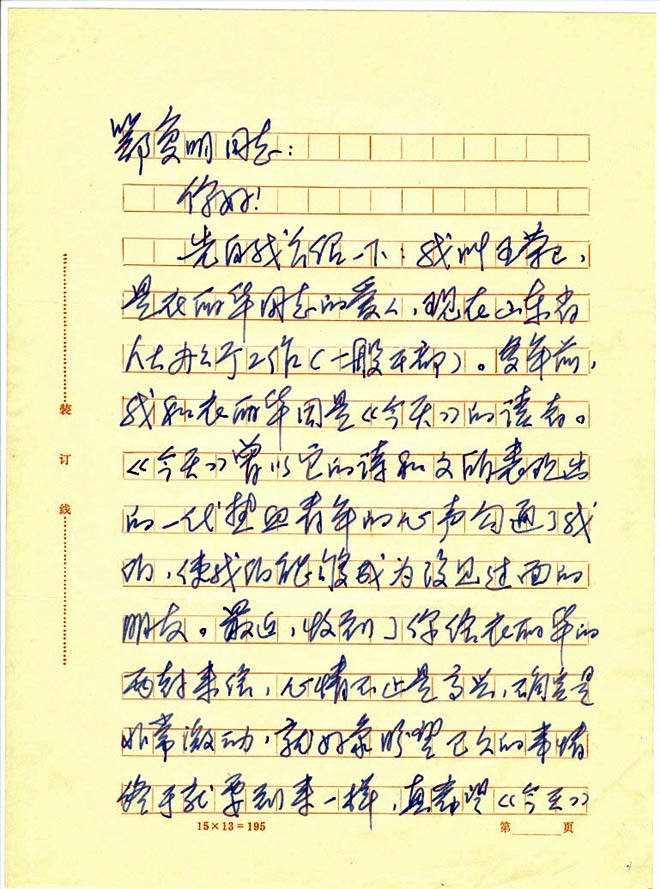 鄂复明同志：
你好！
先自我介绍一下：我叫王荣已，
是衣丽华同志的爱人，现在山东省
人大办公厅工作（一般干部）。多年前，
我和衣丽华同是《今天》的读者。
《今天》曾以它的诗和文所表现出
的一代热血青年的心声勾通了我
们，使我们能够成为没见过面的
朋友。最近，收到了你给衣丽华的
两封来信，心情不止是高兴，确实是
非常激动，就好象盼望已久的事情
终于就要到来一样，真希望《今天》
装订线
15×13=195
第 页